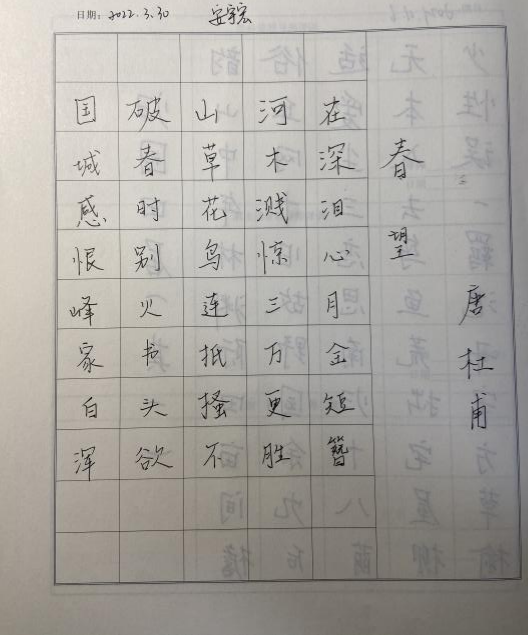 日期: 2022.3.30
春望
唐杜甫
国破山河在
城春草木深
感时花溅泪
恨别鸟惊心
峰火连三月
家书抵万金
白头搔更短
浑欲不胜簪